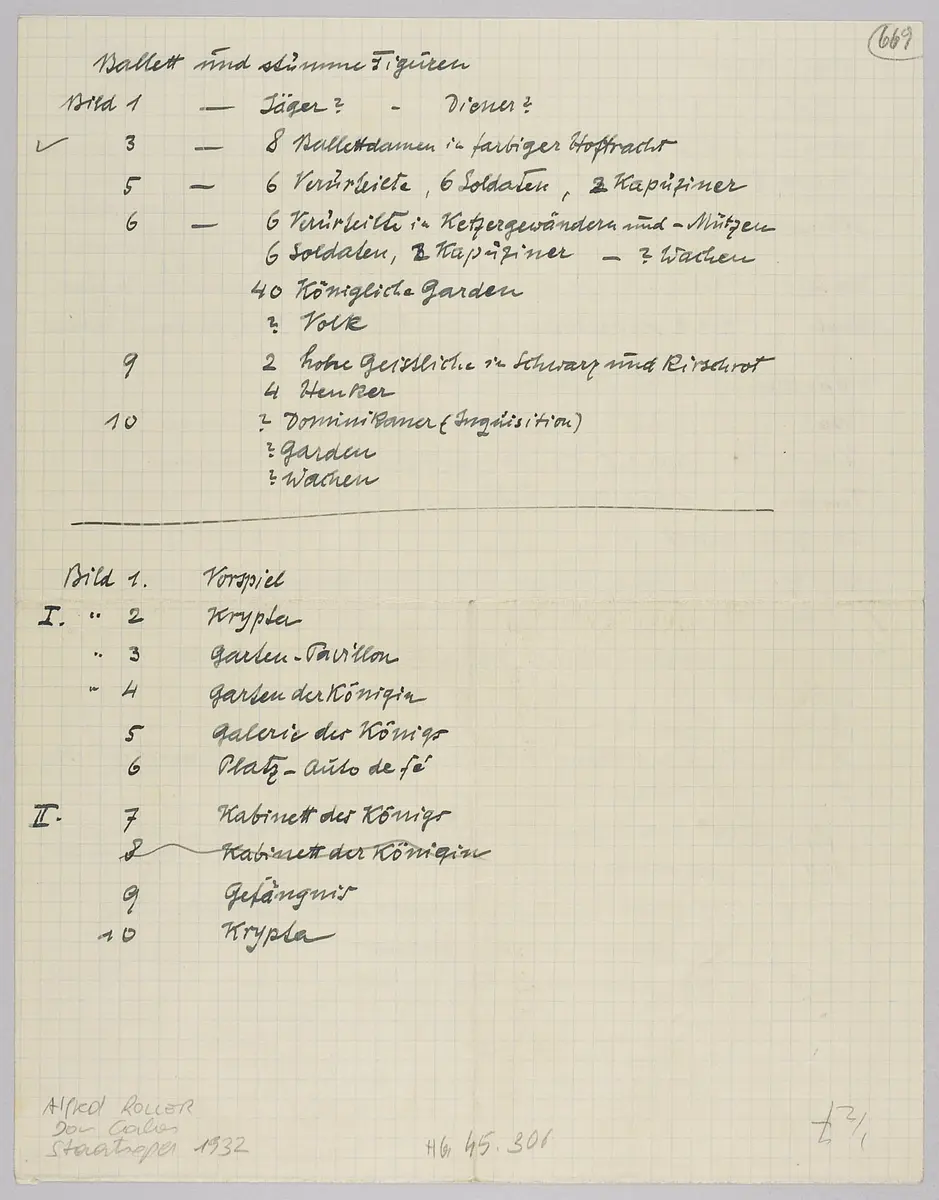 669
Ballett und stumme Figuren
Bild 1 — Jäger? - Diener?
✓ 3 — 8 Ballettdamen in farbiger Hoftracht
5 — 6 Verurteilte, 6 Soldaten, 2 Kapuziner
6 — 6 Verurteilte in Ketzergewändern und -Mützen
6 Soldaten, 2 Kapuziner — ? Wachen
40 Königliche Garden
? Volk
9 2 hohe Geistliche in Schwarz und Kirschrot
4 Henker
10 ? Dominikaner (Inquisition)
? Garden
? Wachen
Bild 1. Vorspiel
I. " 2 Krypta
" 3 Garten-Pavillon
" 4 Garten der Königin
5 Galerie des Königs
6 Platz - Auto de fé
II. 7 Kabinett des Königs
8 Kabinett der Königin
9 Gefängnis
10 Krypta
Alfred ROLLER
Don Carlos
Staatsoper 1932
HG 45.306